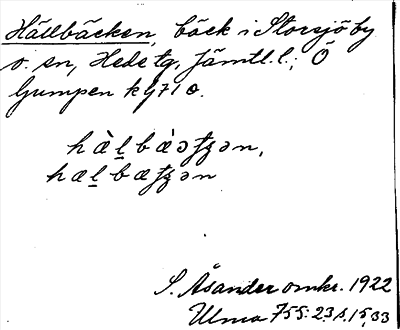 Hällbäcken, bäck i Storsjö by
o. sn, Hede tg, Jämtl. l.; Ö
Ljumpen k
hæ̀l̠bæ̀ɔʈʂən,
hæl̠bæʈʂən
S. Åsander omkr. 1922
Ulma 755:23 s. 15, 33